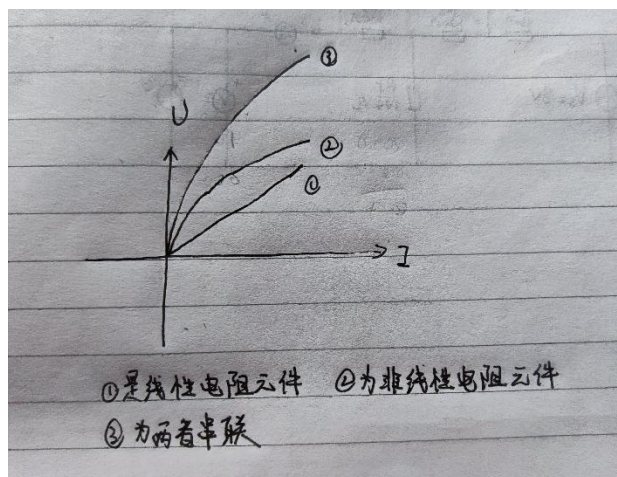 ③
U
②
①
I
①是线性电阻元件 ②为非线性电阻元件
③为两者串联